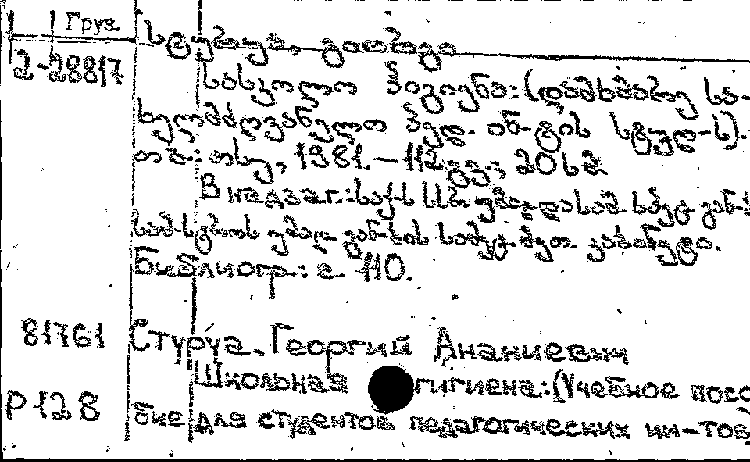 Груз.
2-28817
სტურუა, გიორგი
სასკოლო ჰიგიენა: (დამხმარე სა-
ხელმძღვანელო პედ. ინ-ტის სტუდ-ს).
თბ.: თსუ, 1981.—112 გვ.; 20 სმ
В надзаг.: საქ. სსრ უმაღ. და საშ.
Библиогр.: с. 110.
81761
Стуруа, Георгий Ананиевич
Школьная гигиена: (Учебное посо-
Р 128
бие для студентов педагогических ин-тов